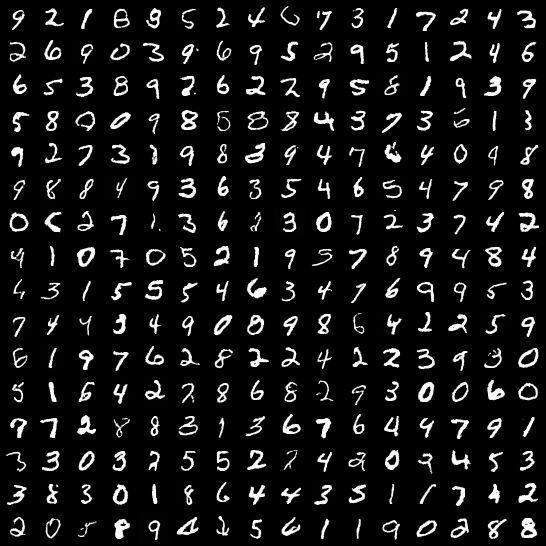 9 2 1 8 9 5 2 4 6 7 3 1 7 2 4 3
2 6 9 0 3 9 6 9 5 2 9 5 1 2 4 6
6 5 3 8 9 2 6 2 2 9 5 8 1 9 3 9
5 8 0 0 9 8 5 8 8 4 3 7 3 6 1 3
9 2 7 3 1 9 8 3 9 4 7 6 4 0 9 8
9 8 8 4 9 3 6 3 5 4 6 5 4 7 9 8
0 2 7 1 3 6 2 3 0 7 2 3 7 4 2
9 1 0 7 0 5 2 1 9 5 7 8 9 4 8 4
3 1 5 5 5 4 6 3 4 7 6 9 9 5 3
7 4 4 3 4 9 0 8 9 8 6 4 2 2 5 9
8 1 9 7 6 2 8 2 2 4 2 2 3 9 3 0
5 1 6 4 2 2 8 6 8 2 9 3 0 0 6 0
7 7 2 8 8 3 1 3 6 7 6 4 9 7 9 1
3 3 0 3 2 5 5 2 2 4 2 0 2 4 5 3
3 8 3 0 1 8 6 4 4 3 5 1 1 7 4 2
2 0 5 8 9 2 5 6 1 1 9 0 2 8 8